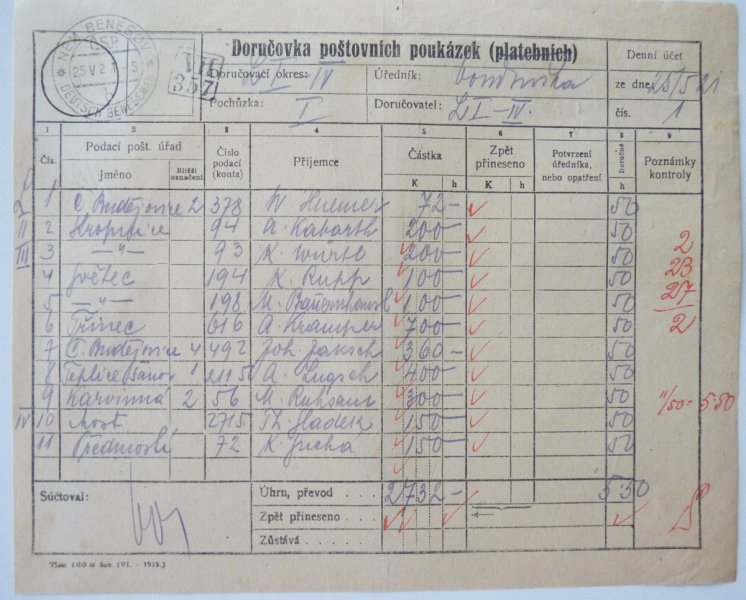 NĚM. BENEŠOV
ČSP
25 V 21
5
DEUTSCH BENESCHAU
VII
357
Doručovka poštovních poukázek (platebních)
Denní účet
Doručovací okres: LI-IV Úředník:
ze dne 25/5 21
Pochůzka: I Doručovatel: LI-IV.
čís. 1
1 2 3 4 5 6 7 8 9
Čís. Podací pošt. úřad Číslo podací (konta) Příjemce Částka Zpět přineseno Potvrzení úředníka, nebo opatření Doručné Poznámky kontroly
Jméno Bližší označení K h K h h
1 Č. Budějovice 2 378 W. Huemer 72 - 50
II 2 94 A. Kabarth 200 - 50
2
III 3 -"- 93 K. Würtl 200 - 50
23
4 Světec 194 K. Rupp 100 - 50
257
5 -"- 198 M. 100 - 50
2
6 Třinec 616 A. Kramper 700 - 50
7 Č. Budějovice 4 492 Joh. Jaksch 360 - 50
8 Teplice Šanov 1 2115 A. Lugsch 400 - 50
9 Karvinná 2 56 M. 300 - 50
11/50 = 5·50
IV 10 Most 2715 Th. Hladek 150 - 50
11 Předmostí 72 K. Jucha 150 - 50
Súčtoval:
Úhrn, převod . . . 2732 - 5 50
Zpět přineseno . . .
Zůstává . . .
(VI. - 1919.)